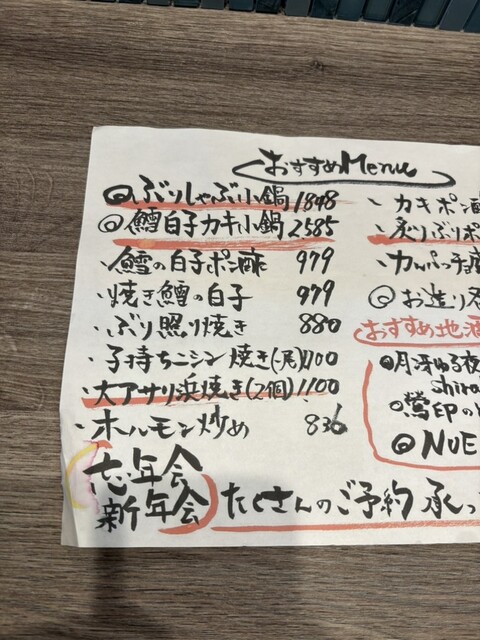 おすすめMenu
◎ぶりしゃぶ小鍋 1848
◎鱈白子カキ小鍋 2585
・鱈の白子ポン酢 979
・焼き鱈の白子 979
・ぶり照り焼き 880
・子持ちニシン焼き(一尾) 1100
・大アサリ浜焼き(2個) 1100
・ホルモン炒め 836
・カキポン酢
・炙りぶりポ
・カンパチ
◎お造り
おすすめ地酒
◎月冴ゆる夜
Shira
◎鶯印の
◎NUE
忘年会
新年会
たくさんのご予約承っ